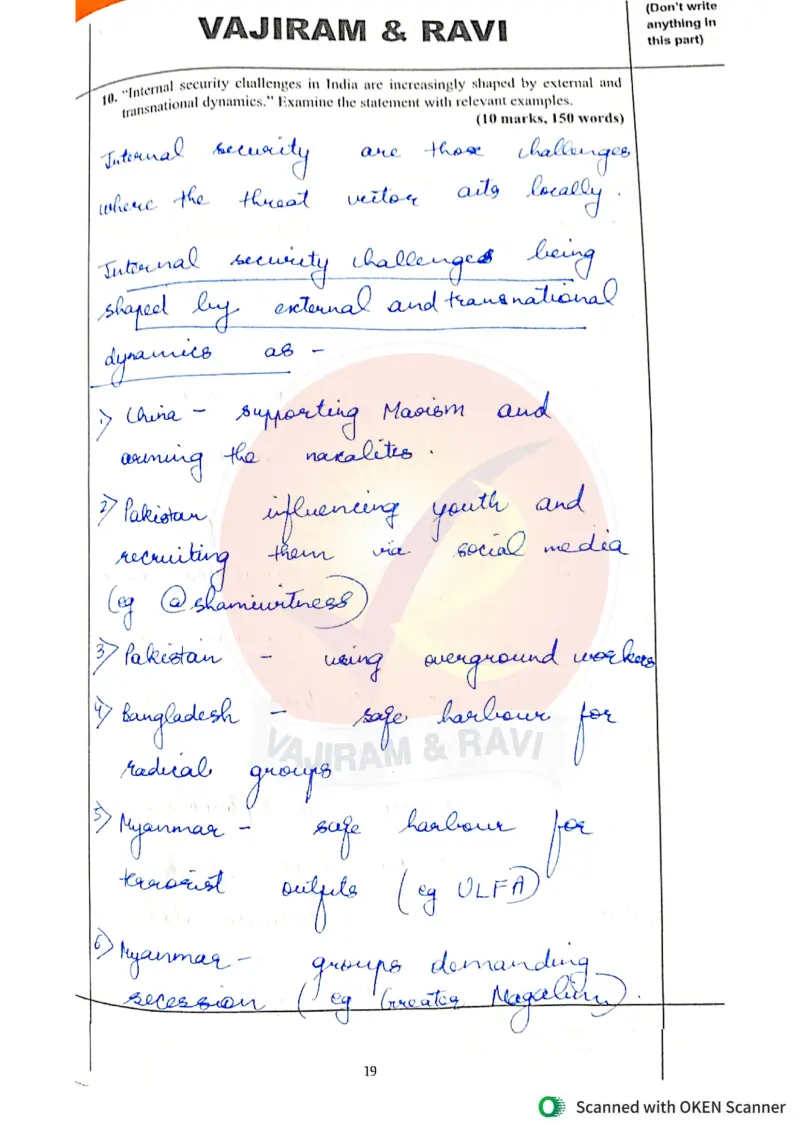 VAJIRAM & RAVI
(Don't write
anything in
this part)
10. "Internal security challenges in India are increasingly shaped by external and
transnational dynamics." Examine the statement with relevant examples.
(10 marks, 150 words)
Internal security are those challenges
where the threat vector acts locally.
Internal security challenges being
shaped by external and transnational
dynamics as -
1) China - supporting Maoism and
arming the naxalites.
2) Pakistan influencing youth and
recruiting them via social media
(eg @shamiwitness)
3) Pakistan - using overground workers
4) Bangladesh - safe harbour for
radical groups
VAJIRAM & RAVI
5) Myanmar - safe harbour for
terrorist outfits (eg ULFA)
6) Myanmar - groups demanding
secession (eg Greater Nagalim).
19
Scanned with OKEN Scanner